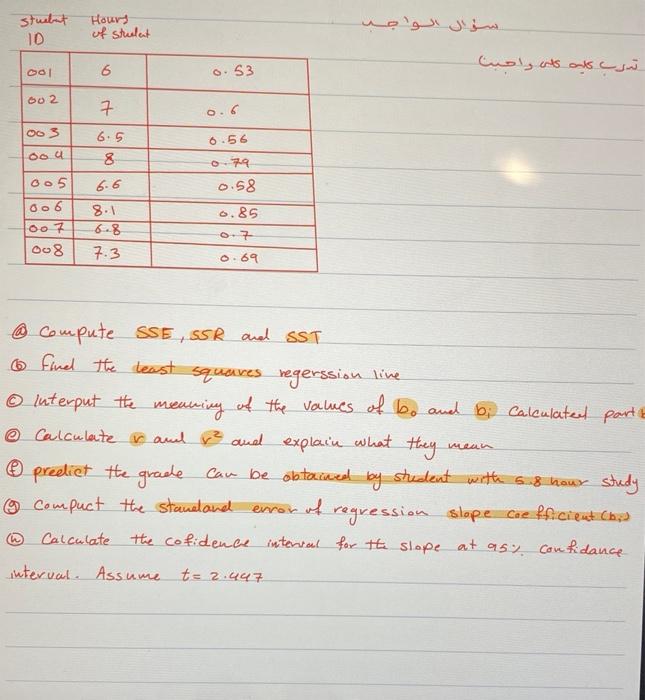 student Hours سؤال الواجب
ID of studet
001 6 0.53
002 7 0.6
003 6.5 0.56
004 8 0.79
005 6.6 0.58
006 8.1 0.85
007 6.8 0.7
008 7.3 0.69
ⓐ compute SSE, SSR and SST
ⓑ find the least squares regerssion line
ⓒ Interput the meaning of the values of b₀ and b₁ Calculated part
ⓔ Calculate r and r² and explain what they mean
ⓕ predict the grade Can be obtained by student with 5.8 hour study
ⓖ Compuct the standand error of regression slope coefficient (b₁)
ⓗ Calculate the cofidence interval for the slope at 95% confidance
interval. Assume t= 2.447